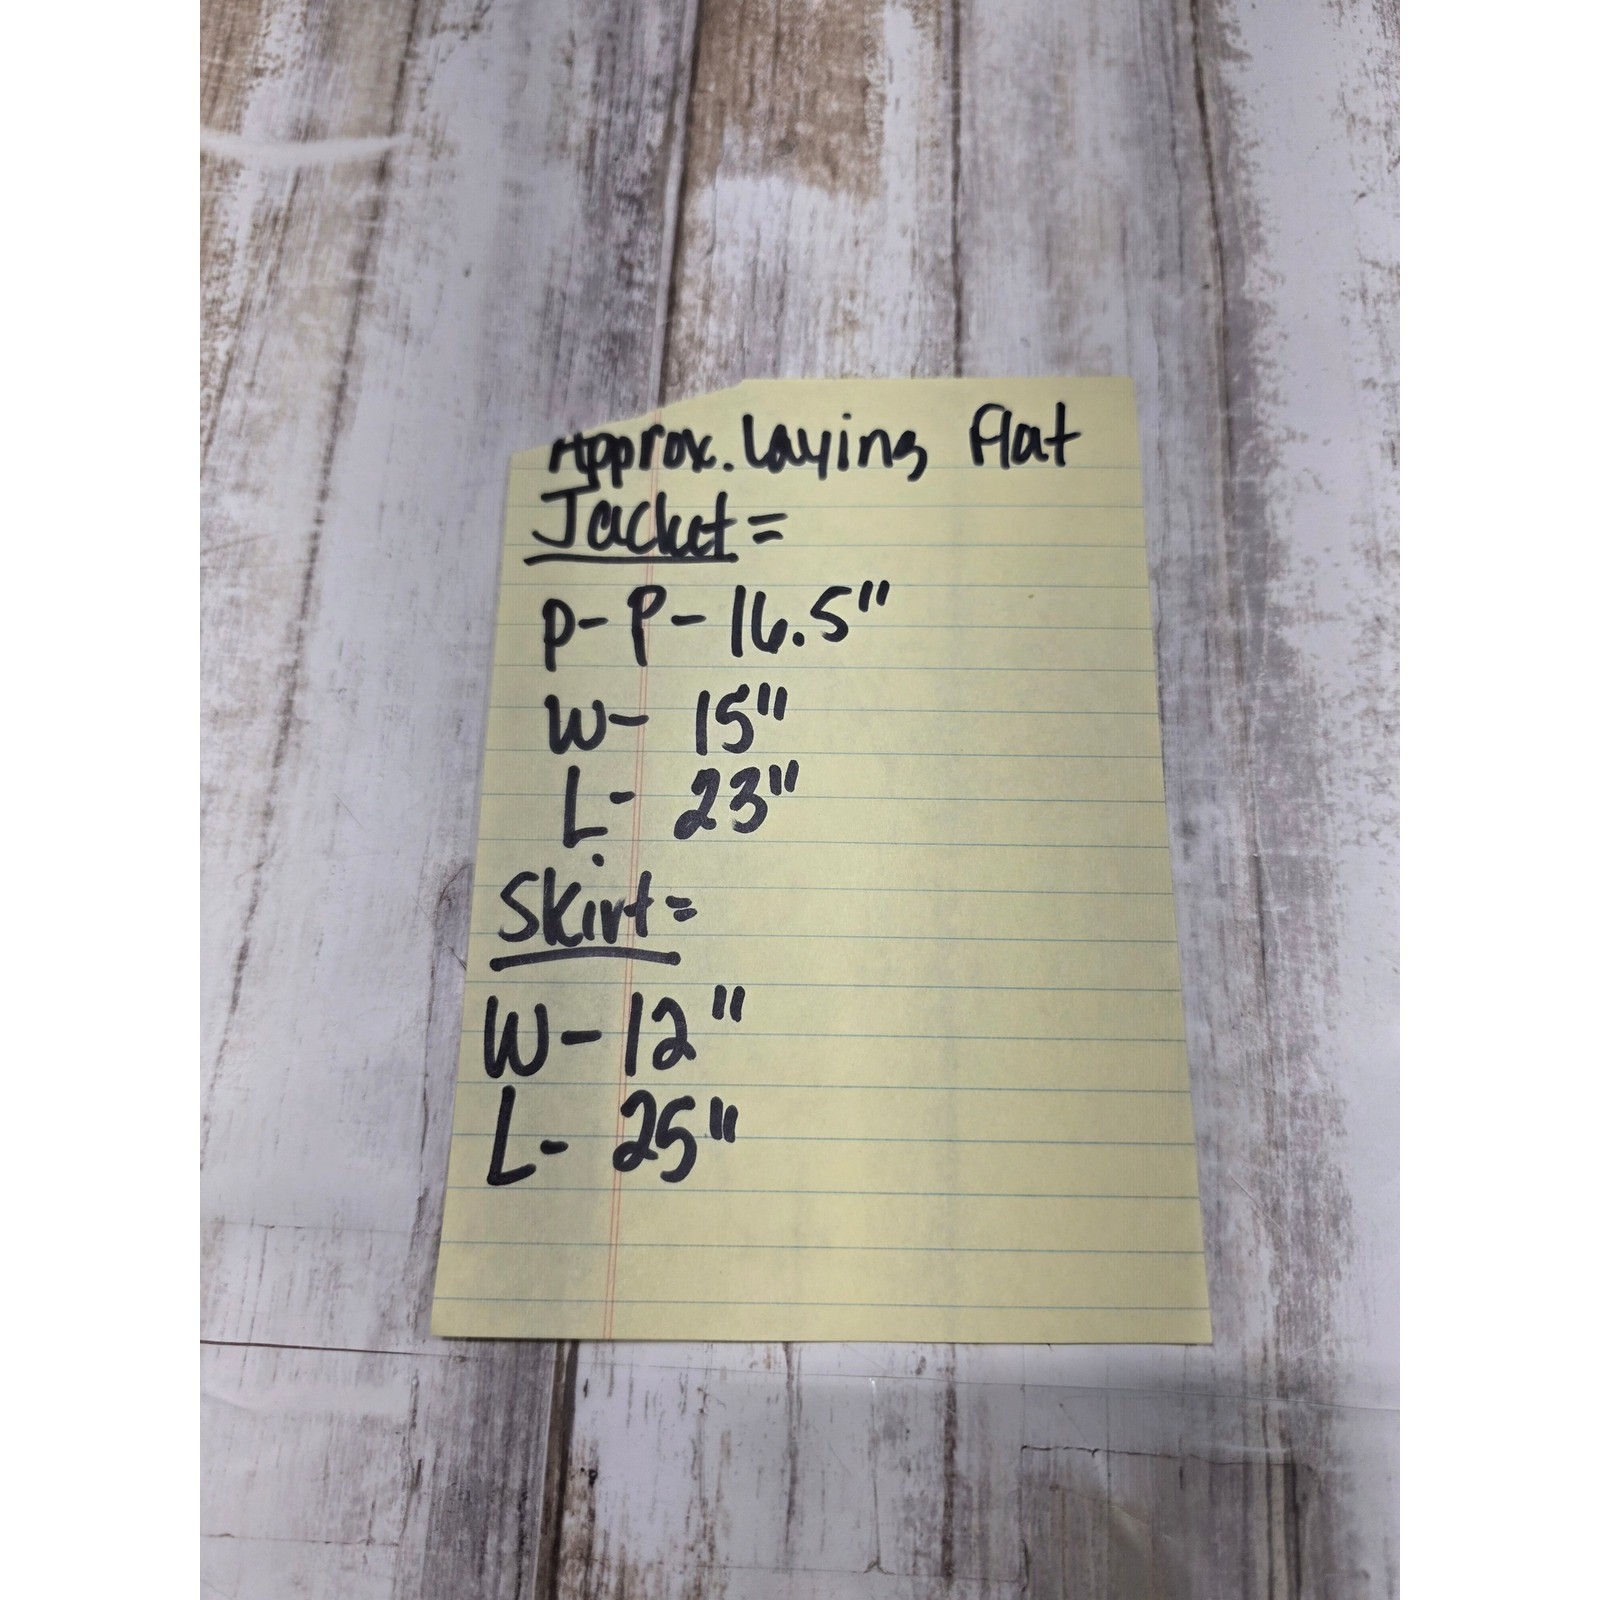 Approx. Laying Flat
Jacket=
P-P-16.5"
W- 15"
L- 23"
Skirt=
W-12"
L- 25"